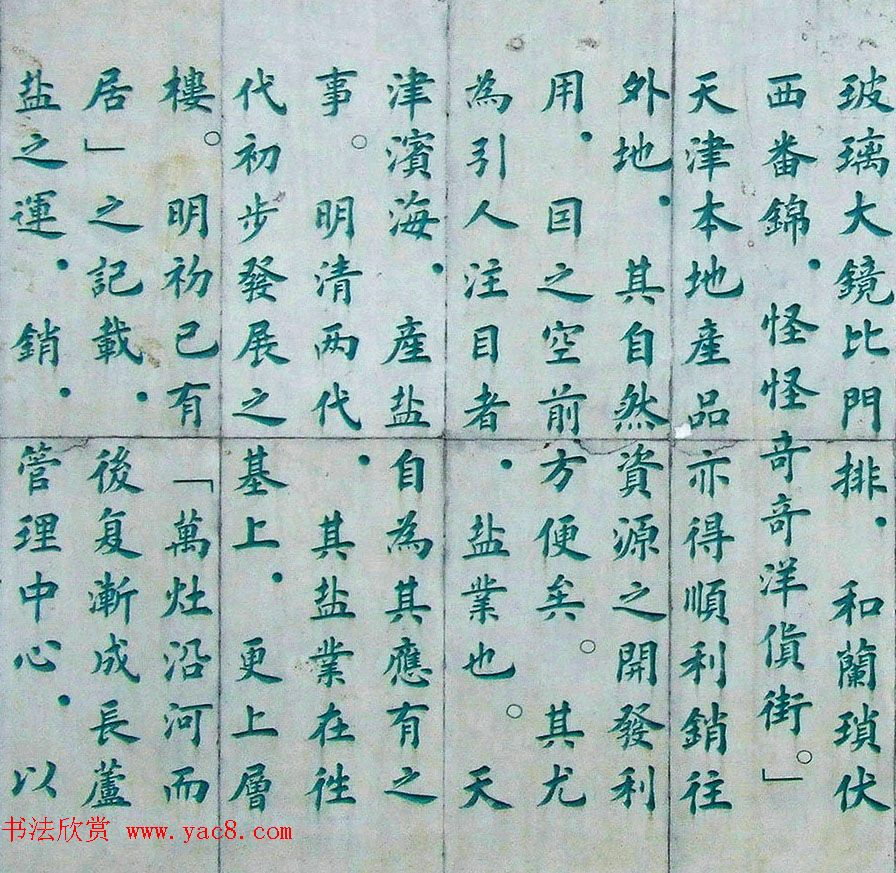 玻璃大鏡比門排．和蘭瑣伏
西番錦．怪怪奇奇洋貨街。」
天津本地產品亦得順利銷往
外地．其自然資源之開發利
用．因之空前方便矣。其尤
為引人注目者．盐業也。天
津濱海．產盐自為其應有之
事。明清两代．其盐業在徃
代初步發展之基上．更上層
樓。明初已有「萬灶沿河而
居」之記載．後复漸成長蘆
盐之運．銷．管理中心．以
书法欣赏 www.yac8.com